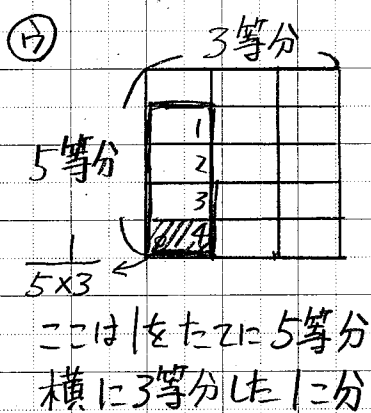 ウ
3等分
5等分
1
2
3
4
1
5×3
ここは1をたてに5等分
横に3等分した1こ分